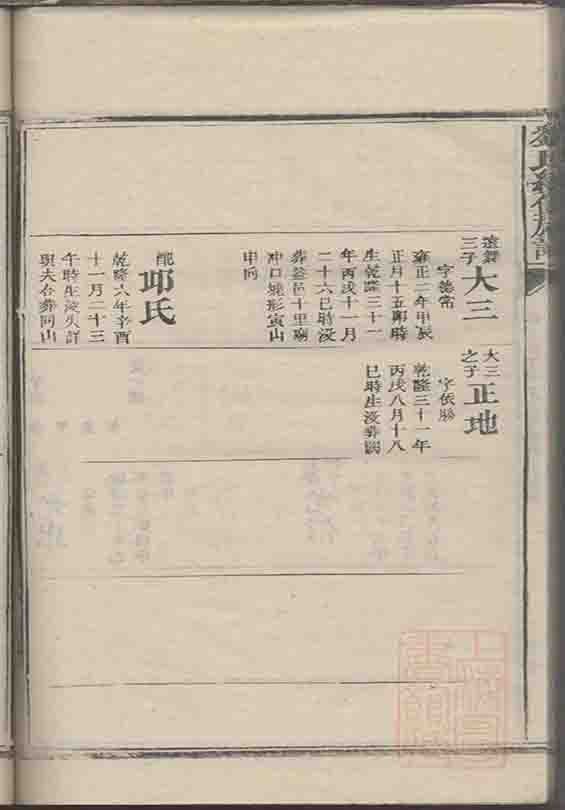 三子
大三
字德常
雍正二年甲辰
正月十五卯時
生乾隆三十一
年丙戌十一月
二十六巳時没
葬益邑十里廟
冲口形寅山
申向
配
邱氏
乾隆六年辛酉
十一月二十三
午時生没失詳
與夫合葬同山
大三
之子
正地
字依勝
乾隆三十一年
丙戌八月十八
巳時生没葬闕
上海圖
書館藏